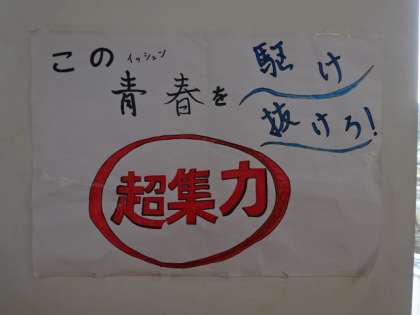 この
イッシュン
青春を
駆け
抜けろ!
超集力